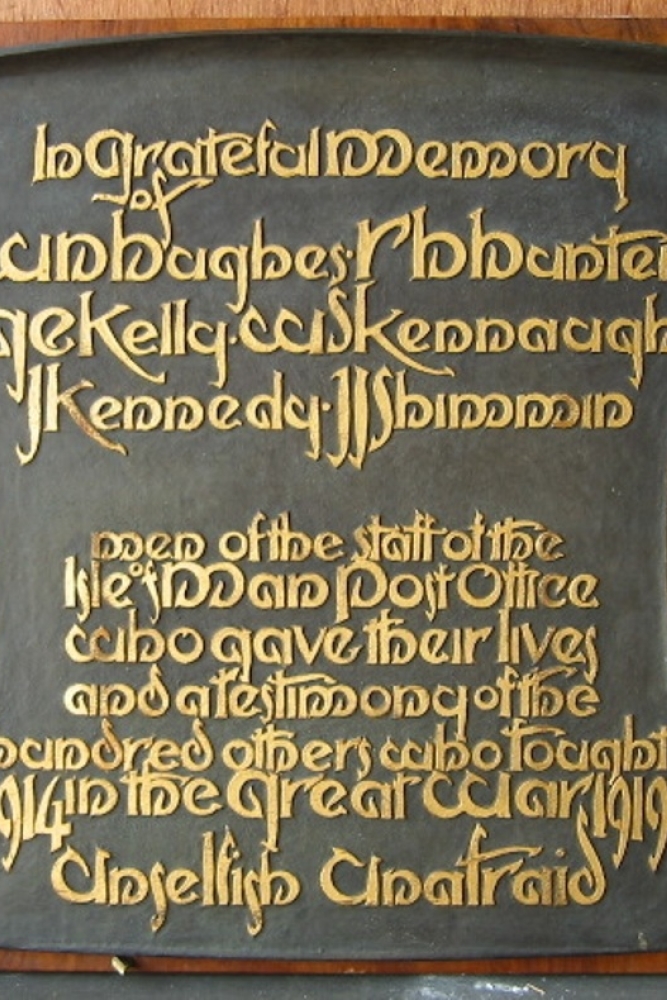 In Grateful Memory
of
WN Hughes · R H Hunter
GE Kelly · WS Kennaugh
J Kennedy · JJ Shimmin
men of the staff of the
Isle of Man Post Office
who gave their lives
and a testimony of the
hundred others who fought
1914 in the Great War 1919
Unselfish Unafraid